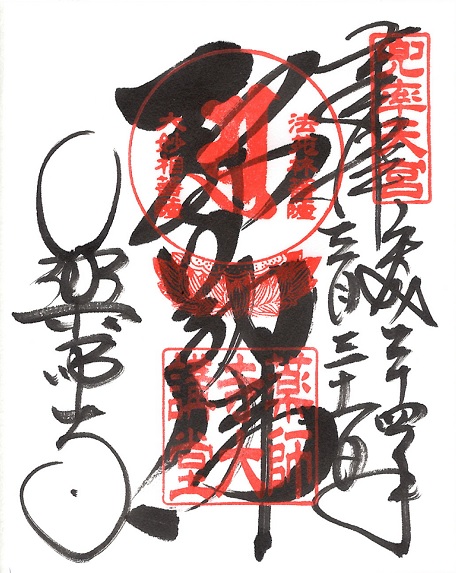 兜率天宮
奉拝
平成二十四年
三月三十一日
弥勒
法苑林菩薩
大妙相菩薩
薬師
寺大
講堂
薬師寺